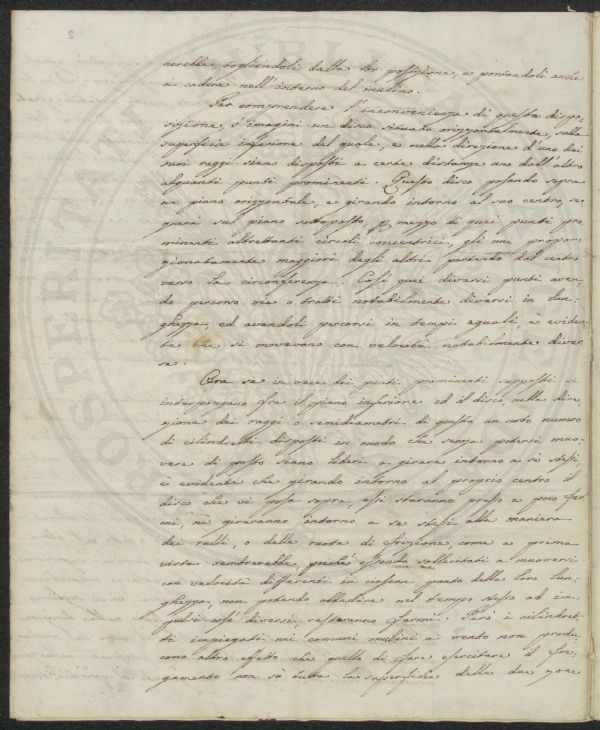 nerebbe, togliendoli dalla lor posizione, e portandoli anche
a cadere nell'interno del mulino.
Per comprendere l'inconvenienza di questa dispo-
sizione, s'immagini un disco situato orizzontalmente, sulla
superficie inferiore del quale, e nella direzione d'uno dei
suoi raggi siano disposti a certe distanze uno dall'altro
alquanti punti prominenti. Questo disco posando sopra
un piano orizzontale, e girando intorno al suo centro se-
gnerà sul piano sottoposto, p. mezzo di quei punti pro-
minenti altrettanti circoli concentrici, gli uni propor-
zionatamente maggiori degli altri partendo dal centro
verso la circonferenza. Così quei diversi punti aven-
do percorso vie o tratti notabilmente diversi in lun-
ghezza, ed avendoli percorsi in tempi eguali, è eviden-
te che si movevano con velocità notabilmente diver-
se.
Ora se in vece dei punti prominenti supposti si
interpongano fra il piano inferiore ed il disco, nella dire-
zione dei raggi o semidiametri di questo, un certo numero
di cilindretti disposti in modo che senza potersi muo-
vere di posto siano liberi a girare intorno a sè stessi,
è evidente che girando intorno al proprio centro il
disco che vi posa sopra, essi staranno presso a poco fer-
mi, nè gireranno intorno a se stessi alla maniera
dei rulli, o delle ruote di frizione, come a prima
vista sembrerebbe, poichè essendo sollecitati a muoversi
con velocità differenti in ciascun punto della loro lun-
ghezza, non potendo obbedire nel tempo stesso ad im-
pulsi così diversi, resteranno fermi. Però i cilindret-
ti impiegati nei comuni mulini a vento non produ-
cono altro effetto che quello di fare esercitare il fre-
gamento non su tutta la superficie delle due zone
PUBLICA
PROSPERITATI